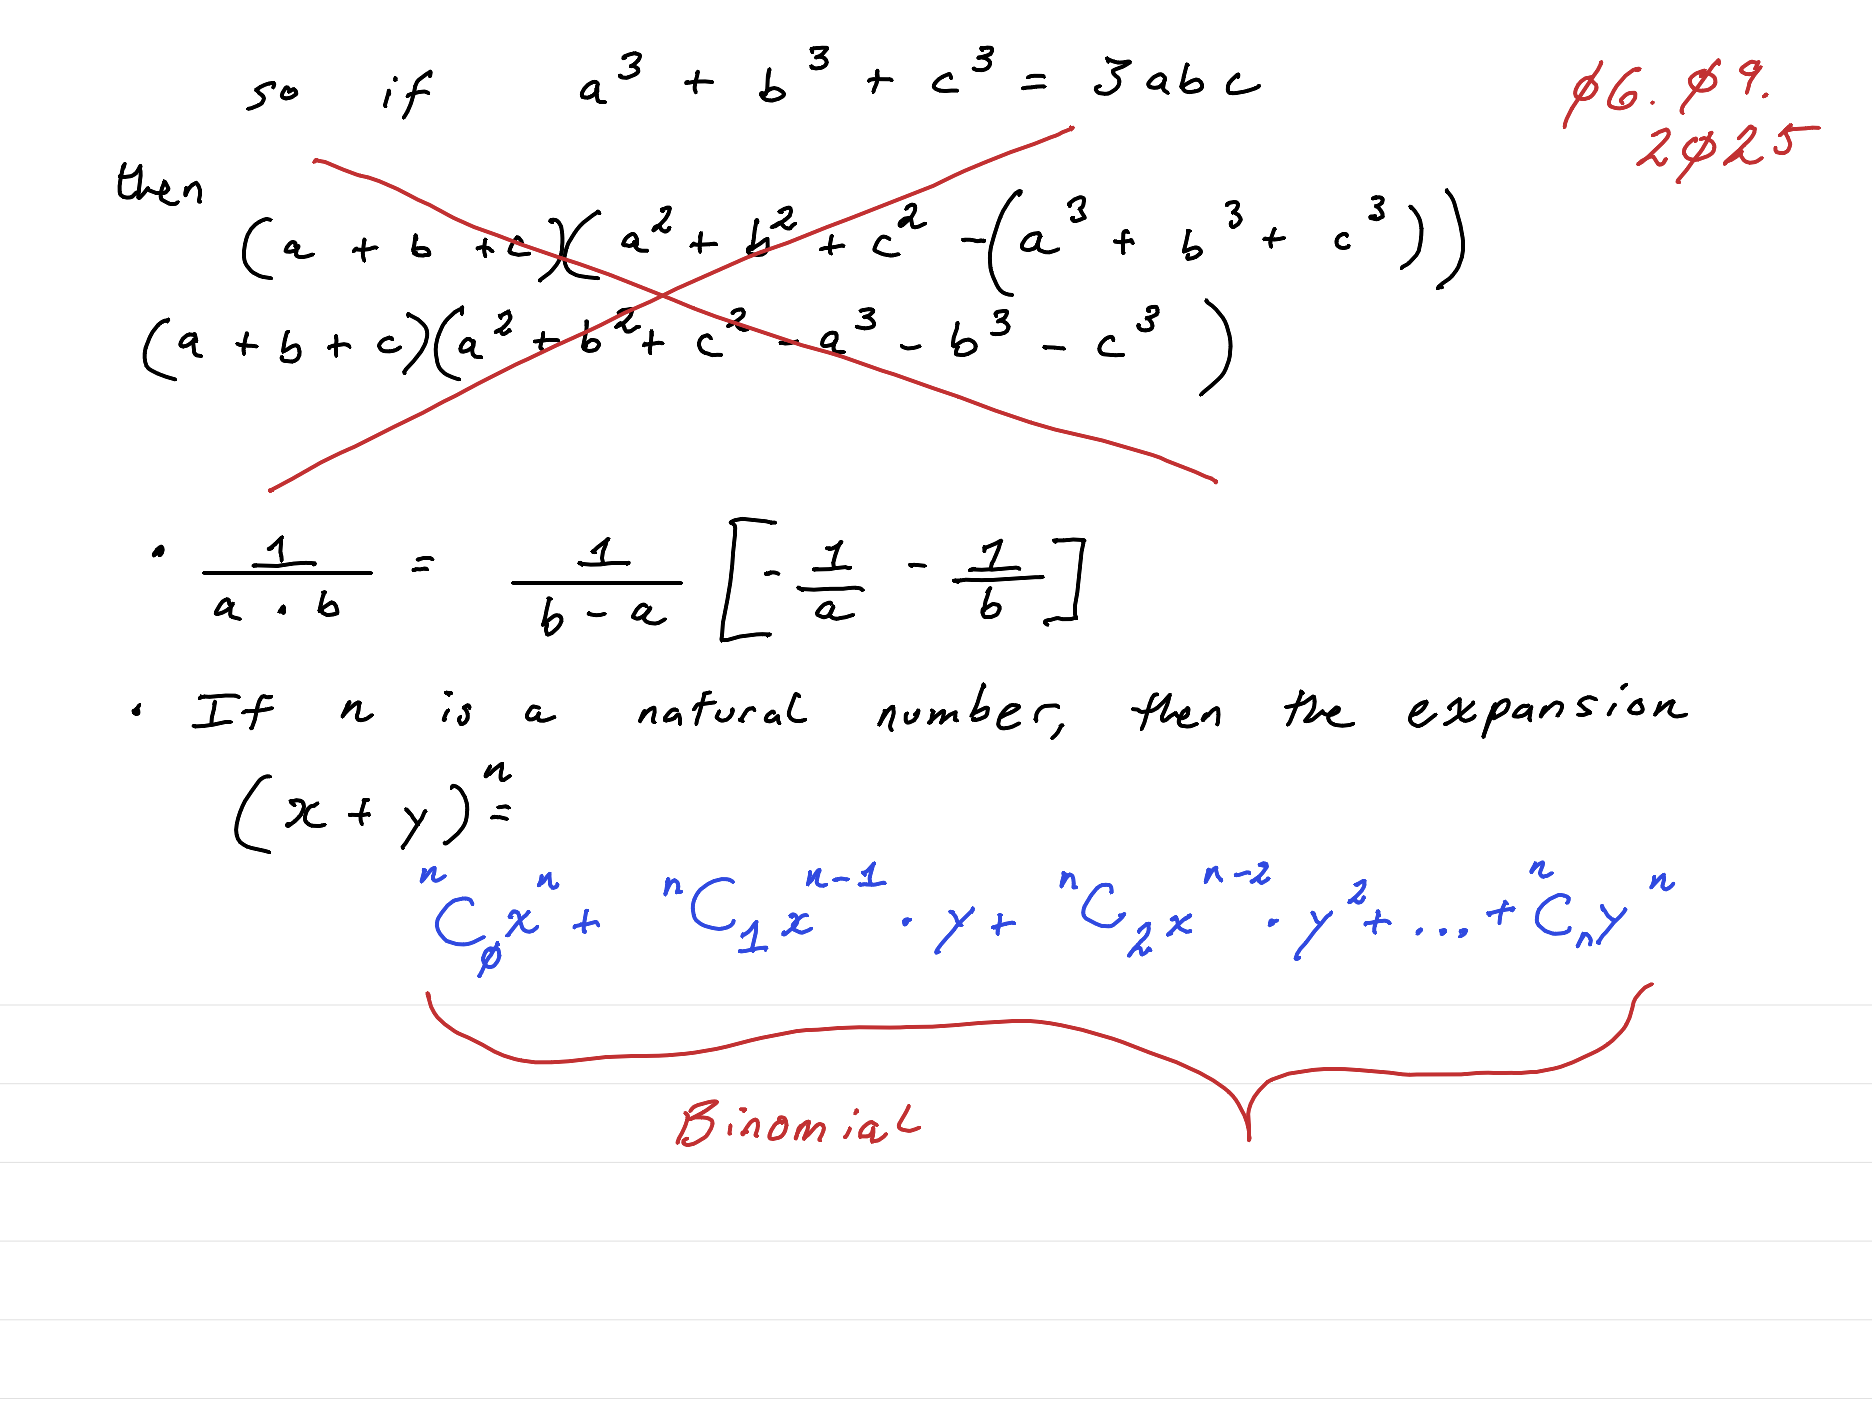 so if a³ + b³ + c³ = 3abc
ø6. ø9.
2ø25
then
(a + b + c)(a² + b² + c² - (a³ + b³ + c³))
(a + b + c)(a² + b² + c² - a³ - b³ - c³)
• 1/(a · b) = 1/(b - a) [- 1/a - 1/b]
• If n is a natural number, then the expansion
(x + y)ⁿ =
ⁿC₀xⁿ + ⁿC₁xⁿ⁻¹ · y + ⁿC₂xⁿ⁻² · y² + ... + ⁿCₙyⁿ
Binomial